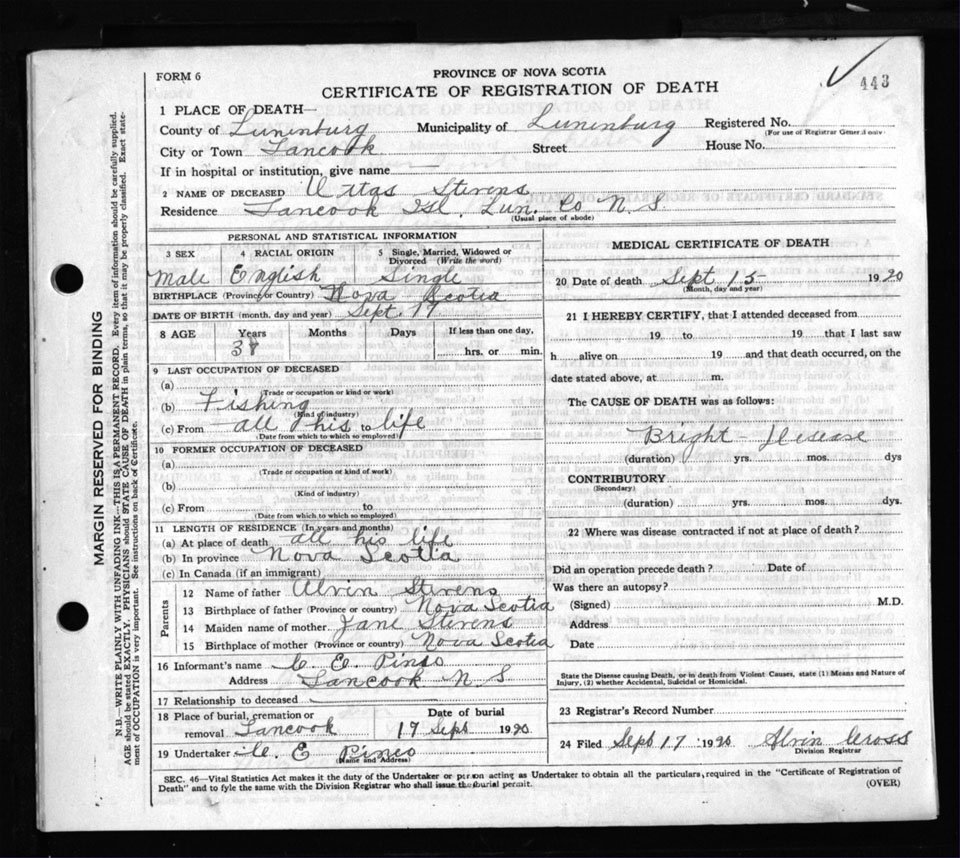 443
FORM 6
PROVINCE OF NOVA SCOTIA
CERTIFICATE OF REGISTRATION OF DEATH
1 PLACE OF DEATH—
County of Lunenburg Municipality of Lunenburg Registered No.
(For use of Registrar General only.
City or Town Tancook Street House No.
If in hospital or institution, give name
2 NAME OF DECEASED Stevens
Residence Tancook Isl. Lun. Co N. S.
(Usual place of abode)
PERSONAL AND STATISTICAL INFORMATION
3 SEX 4 RACIAL ORIGIN 5 Single, Married, Widowed or Divorced (Write the word)
Male English Single
BIRTHPLACE (Province or Country) Nova Scotia
DATE OF BIRTH (month, day and year) Sept. 17
8 AGE Years Months Days If less than one day,
hrs. or min.
9 LAST OCCUPATION OF DECEASED
(a)
(Trade or occupation or kind or work)
(b) Fishing
(Kind of industry)
(c) From all his to life
(Date from which to which so employed)
10 FORMER OCCUPATION OF DECEASED
(a)
(Trade or occupation or kind of work)
(b)
(Kind of industry)
(c) From to
(Date from which to which so employed)
11 LENGTH OF RESIDENCE (In years and months)
(a) At place of death all his life
(b) In province Nova Scotia
(c) In Canada (if an immigrant)
Parents
12 Name of father Alvin Stevens
13 Birthplace of father (Province or country) Nova Scotia
14 Maiden name of mother Jane Stevens
15 Birthplace of mother (Province or country) Nova Scotia
16 Informant's name
Address Tancook N. S.
17 Relationship to deceased
18 Place of burial, cremation or removal Tancook
Date of burial
17 Sept 1920
19 Undertaker
(Name and Address)
MEDICAL CERTIFICATE OF DEATH
20 Date of death Sept 15 1920
(Month, day and year)
21 I HEREBY CERTIFY, that I attended deceased from
19 to 19 that I last saw
h alive on 19 and that death occurred, on the
date stated above, at m.
The CAUSE OF DEATH was as follows:
Bright Disease
(duration) yrs. mos. dys
CONTRIBUTORY
(Secondary)
(duration) yrs. mos. dys.
22 Where was disease contracted if not at place of death?
Did an operation precede death? Date of
Was there an autopsy?
(Signed) M.D.
Address
Date
State the Disease causing Death, or in death from Violent Causes, state (1) Means and Nature of
Injury, (2) whether Accidental, Suicidal or Homicidal.
23 Registrar's Record Number
24 Filed Sept 17 1920 Alvin Cross
Division Registrar
SEC. 46—Vital Statistics Act makes it the duty of the Undertaker or person acting as Undertaker to obtain all the particulars, required in the "Certificate of Registration of
Death" and to fyle the same with the Division Registrar who shall issue the burial permit.
(OVER)
MARGIN RESERVED FOR BINDING
N.B.—WRITE PLAINLY WITH UNFADING INK—THIS IS A PERMANENT RECORD. Every item of information should be carefully supplied.
AGE should be stated EXACTLY. PHYSICIANS should STATE CAUSE OF DEATH in plain terms, so that it may be properly classified. Exact state-
ment of OCCUPATION is very important. See instructions on back of Certificate.